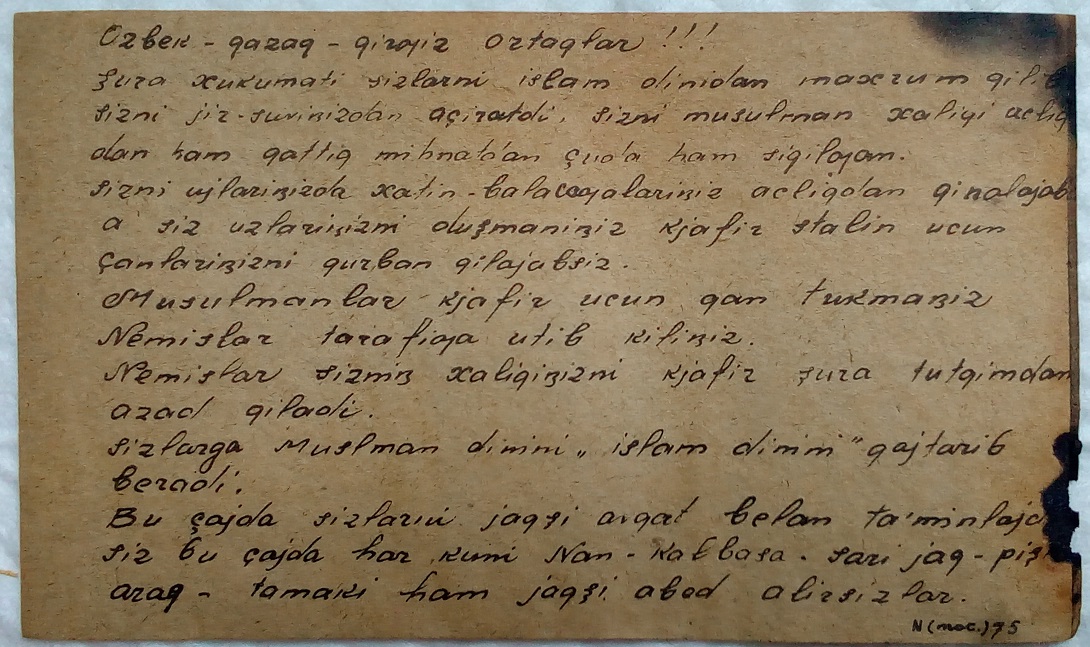 Ozbek - qazaq - qirƣiz ortaqlar !!!
şura xukumati sizlarni islam dinidan maxrum qilib
sizni jir-suviꞑizdan açiratdi. sizni musulman xaliqi acliq
dan ham qattiq mihnatdan çuda ham siqilƣan.
sizni ujlariꞑizda xatin-balacaƣalariꞑiz acliqdan qinalajab
a siz uzlariꞑizni duşmaniꞑiz kjafir stalin ucun
çanlariꞑizni qurban qilajabsiz.
Musulmanlar kjafir ucun qan tukmaꞑiz
Nemislar tarafiƣa utib kitiꞑiz.
Nemislar sizniꞑ xaliqiꞑizni kjafir şura tutqimdan
azad qiladi.
sizlarga Muslman dinini „ islam dinini ” qajtarib
beradi.
Bu çajda sizlarni jaqşi avqat belan ta'minlajd
siz bu çajda har kuni Nan - kalbasa. sari jaq - piş
araq - tamaki ham jaqşi abed alirsizlar.
N (mac.) 75